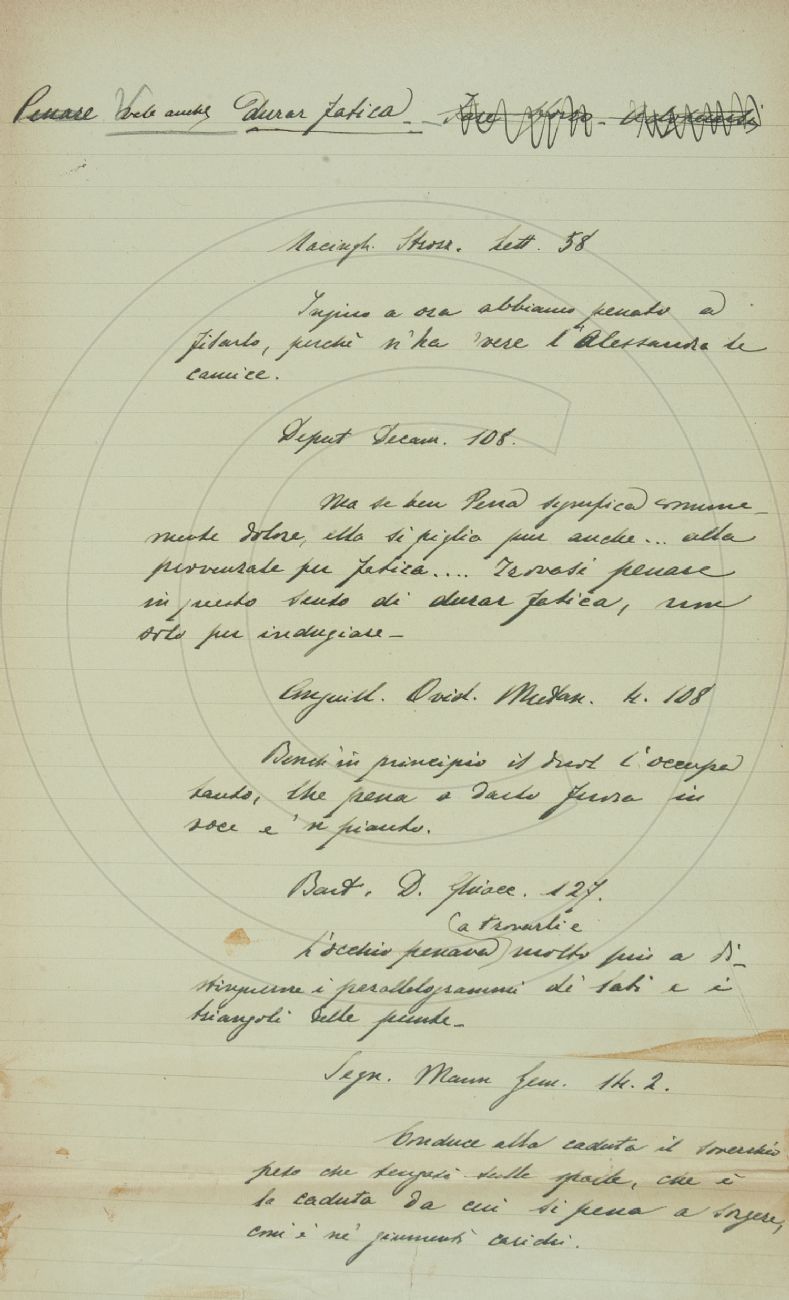 Penare vale anche durar fatica -
Macingh. Stroz. Lett. 58
Insino a ora abbiamo penato a
filarlo, perchè n'ha avere l'Alessandra le
camice.
Deput Decam. 108.
Ma se ben Pena significa comune-
mente dolore, ella si piglia pur anche... alla
provenzale per fatica.... Trovasi penare
in questo senso di durar fatica, non
solo per indugiare -
Anguill. Ovid. Metam. 4. 108
Bench' in principio il duol l'occupa
tanto, che pena a darlo fuora in
voce e 'n pianto.
Bart. D. Ghiacc. 127.
(a trovarli e
L'occhio penava) molto più a di-
stinguerne i parallelogrammi de' lati e i
triangoli delle punte -
Segn. Mann Gen. 14. 2.
Conduce alla caduta il soverchio
peso che tengasi sulle spalle, che è
la caduta da cui si pena a sorgere,
com'è ne' giumenti carichi.